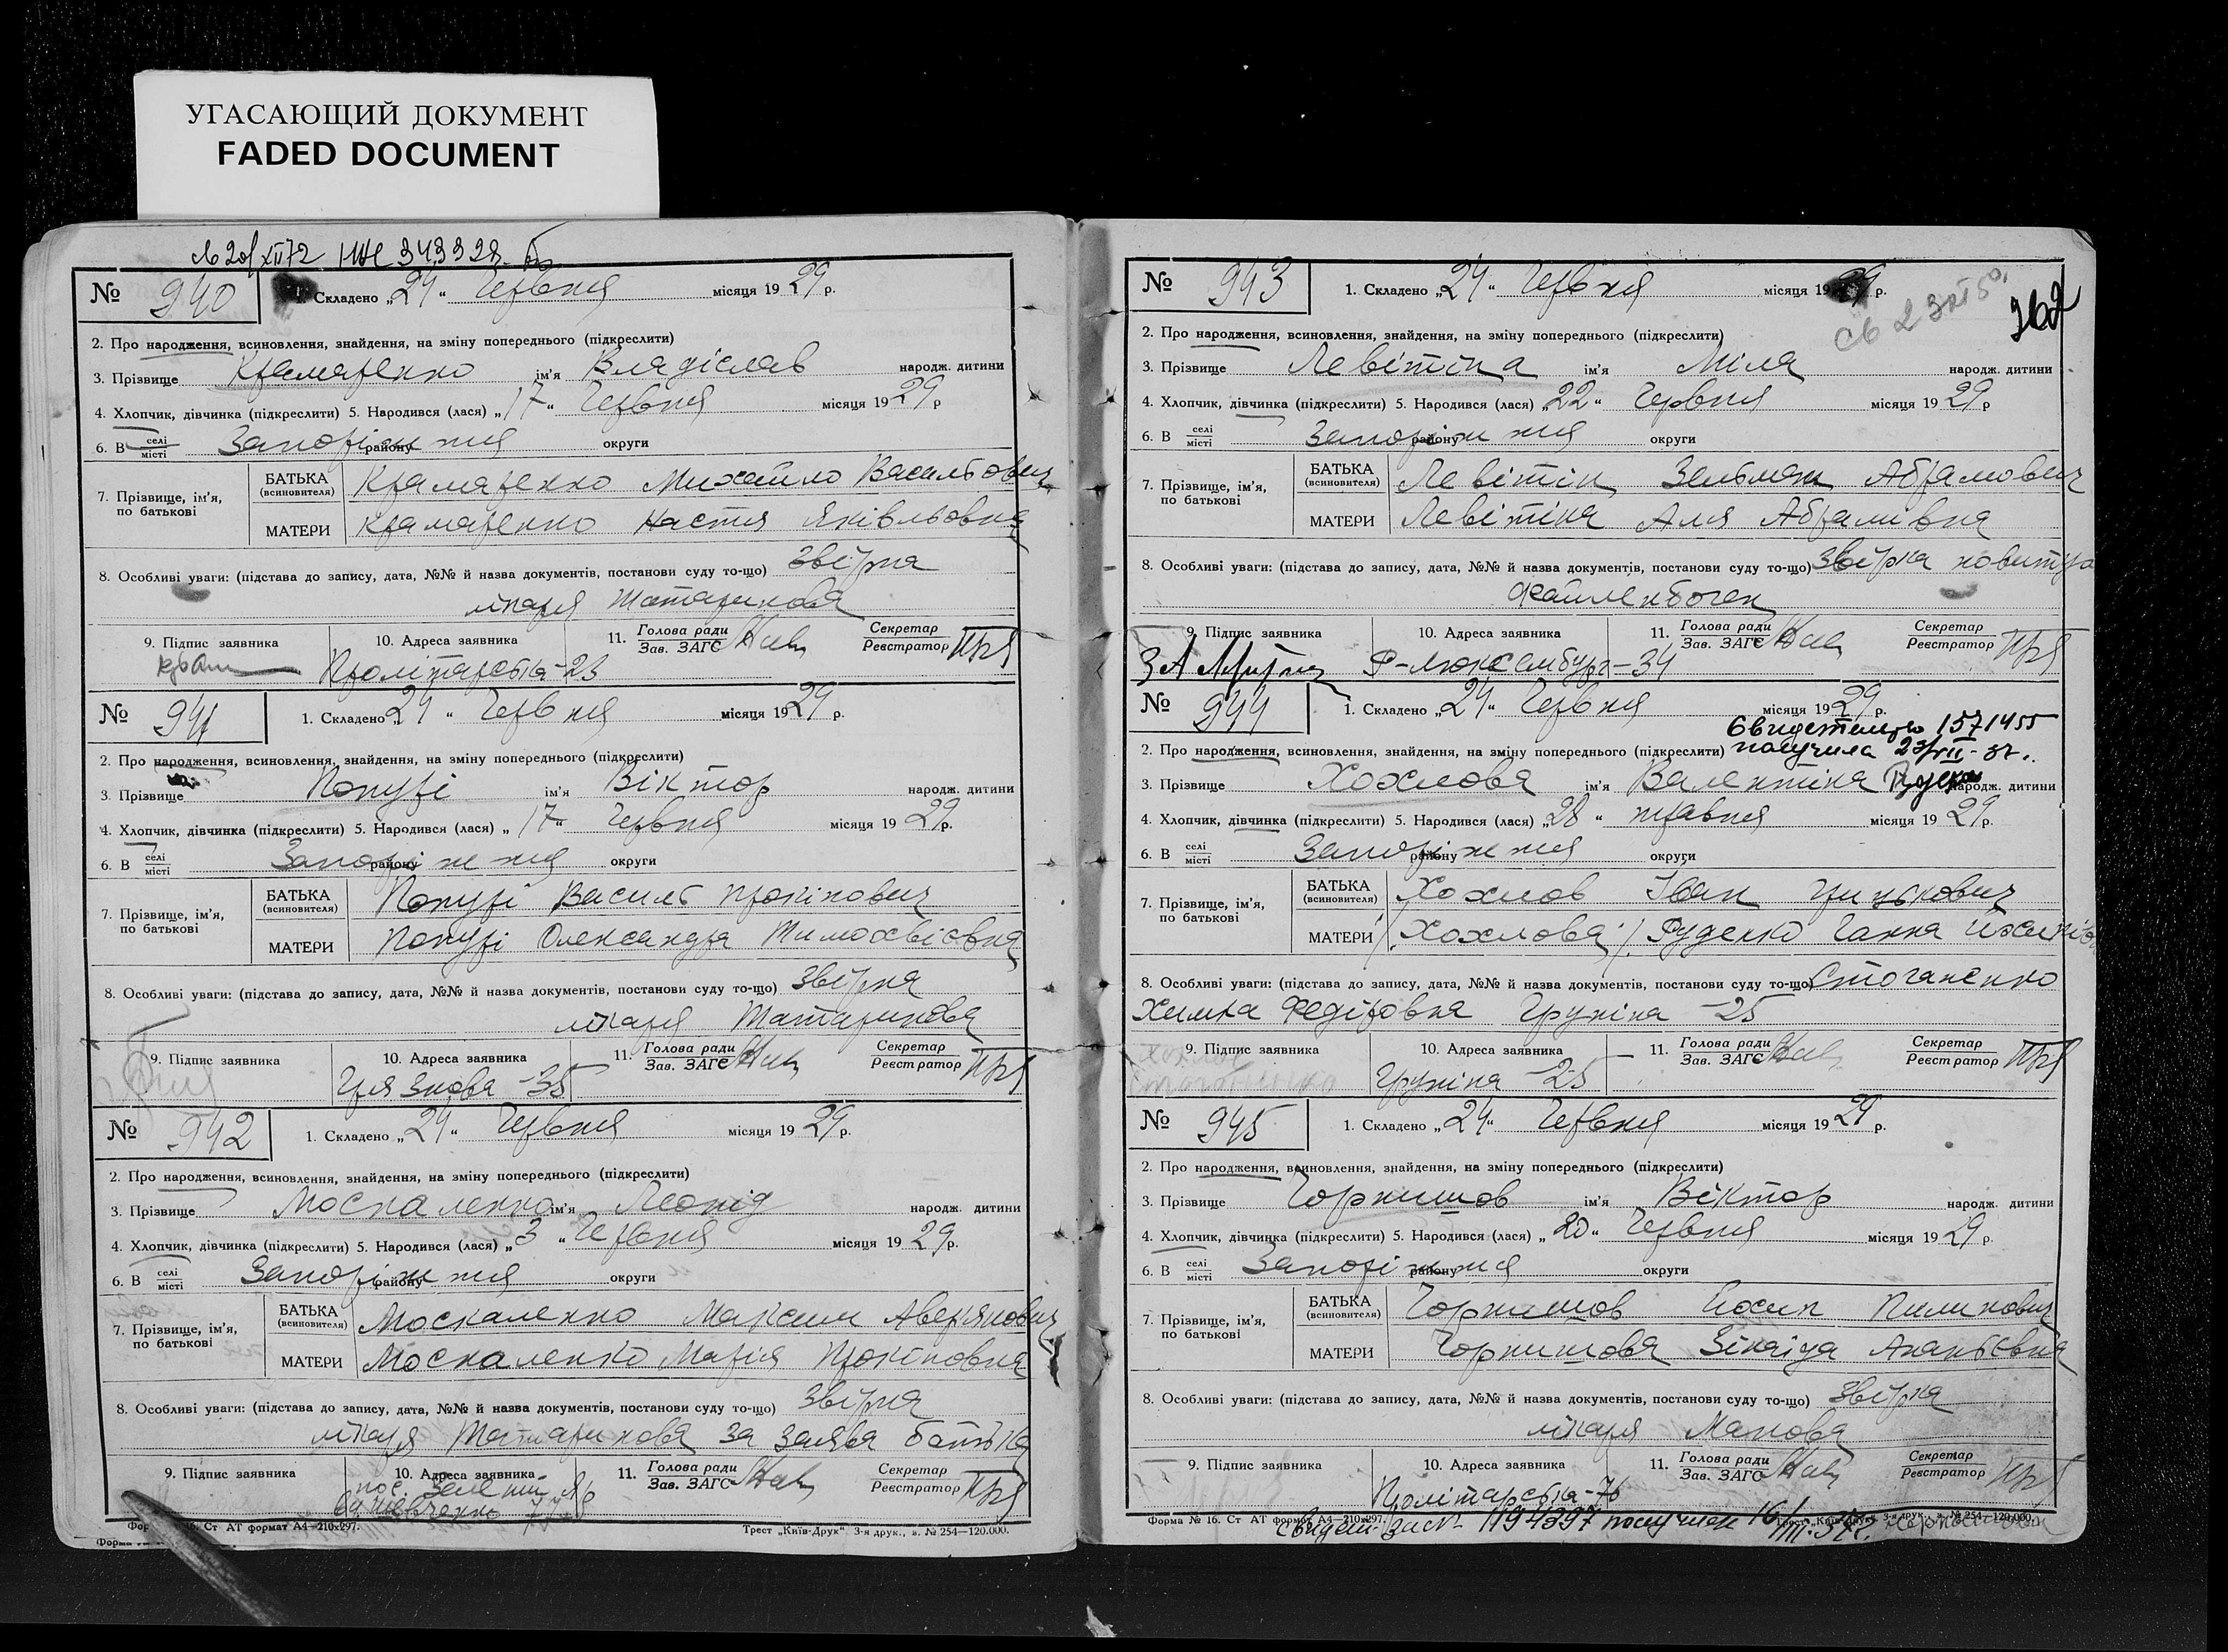 УГАСАЮЩИЙ ДОКУМЕНТ
FADED DOCUMENT
343328
№ 940 1. Складено „24“ Червня місяця 1929 р.
2. Про народження, всиновлення, знайдення, на зміну попереднього (підкреслити)
3. Прізвище Крамаренко ім'я Владіслав народж. дитини
4. Хлопчик, дівчинка (підкреслити) 5. Народився (лася) „17“ Червня місяця 1929 р
6. В селі місті Запоріжжя району округи
7. Прізвище, ім'я, по батькові
БАТЬКА (всиновителя) Крамаренко Михайло Васильович
МАТЕРИ Крамаренко Настя Яківльовна
8. Особливі уваги: (підстава до запису, дата, №№ й назва документів, постанови суду то-що) Звірка
лікаря Татаринова
9. Підпис заявника 10. Адреса заявника 11. Голова ради Зав. ЗАГС Секретар Реєстратор
Пролітарська-23
№ 941 1. Складено „24“ Червня місяця 1929 р.
2. Про народження, всиновлення, знайдення, на зміну попереднього (підкреслити)
3. Прізвище Попурі ім'я Віктор народж. дитини
4. Хлопчик, дівчинка (підкреслити) 5. Народився (лася) „17“ Червня місяця 1929 р.
6. В селі місті Запоріжжя району округи
7. Прізвище, ім'я, по батькові
БАТЬКА (всиновителя) Попурі Василь Прокіпович
МАТЕРИ Попурі Олександра Тимохвієвна
8. Особливі уваги: (підстава до запису, дата, №№ й назва документів, постанови суду то-що) Звірка
лікаря Татаринова
9. Підпис заявника 10. Адреса заявника 11. Голова ради Зав. ЗАГС Секретар Реєстратор
Грязнова-35
№ 942 1. Складено „24“ Червня місяця 1929 р.
2. Про народження, всиновлення, знайдення, на зміну попереднього (підкреслити)
3. Прізвище Москаленко ім'я Леонід народж. дитини
4. Хлопчик, дівчинка (підкреслити) 5. Народився (лася) „3“ Червня місяця 1929 р.
6. В селі місті Запоріжжя району округи
7. Прізвище, ім'я, по батькові
БАТЬКА (всиновителя) Москаленко Максим Аверянович
МАТЕРИ Москаленко Марія Прокіповна
8. Особливі уваги: (підстава до запису, дата, №№ й назва документів, постанови суду то-що) Звірка
лікаря Татаринова за заява батька
9. Підпис заявника 10. Адреса заявника 11. Голова ради Зав. ЗАГС Секретар Реєстратор
пос. Зелений Яр
вул. Шевченко 77
Форма № 16. Ст АТ формат А4—210х297. Трест „Київ-Друк“. 3-я друк., з. № 254—120.000.
№ 943 1. Складено „24“ Червня місяця 1929 р.
2. Про народження, всиновлення, знайдення, на зміну попереднього (підкреслити)
3. Прізвище Левітіна ім'я Міля народж. дитини
4. Хлопчик, дівчинка (підкреслити) 5. Народився (лася) „22“ Червня місяця 1929 р
6. В селі місті Запоріжжя району округи
7. Прізвище, ім'я, по батькові
БАТЬКА (всиновителя) Левітін Зельман Абрамович
МАТЕРИ Левітіна Аля Абрамівна
8. Особливі уваги: (підстава до запису, дата, №№ й назва документів, постанови суду то-що) Звірка повитуха
Файленбоген
9. Підпис заявника 10. Адреса заявника 11. Голова ради Зав. ЗАГС Секретар Реєстратор
Р-Люксембург-34
№ 944 1. Складено „24“ Червня місяця 1929 р.
Свидетельство 1571455
2. Про народження, всиновлення, знайдення, на зміну попереднього (підкреслити) получила
3. Прізвище Хохлова ім'я Валентіна народж. дитини
4. Хлопчик, дівчинка (підкреслити) 5. Народився (лася) „28“ травня місяця 1929 р.
6. В селі місті Запоріжжя району округи
7. Прізвище, ім'я, по батькові
БАТЬКА (всиновителя) Хохлов Іван
МАТЕРИ /Хохлова/ Руденко Ганна
8. Особливі уваги: (підстава до запису, дата, №№ й назва документів, постанови суду то-що) Стоганенко
Химка Федіровна Груніна-25
9. Підпис заявника 10. Адреса заявника 11. Голова ради Зав. ЗАГС Секретар Реєстратор
Груніна-25
№ 945 1. Складено „24“ Червня місяця 1929 р.
2. Про народження, всиновлення, знайдення, на зміну попереднього (підкреслити)
3. Прізвище Горнишов ім'я Віктор народж. дитини
4. Хлопчик, дівчинка (підкреслити) 5. Народився (лася) „20“ Червня місяця 1929 р.
6. В селі місті Запоріжжя району округи
7. Прізвище, ім'я, по батькові
БАТЬКА (всиновителя) Горнишов Йосип Пилипович
МАТЕРИ Горнишова Зінаіда Ананьєвна
8. Особливі уваги: (підстава до запису, дата, №№ й назва документів, постанови суду то-що) Звірка
лікаря
9. Підпис заявника 10. Адреса заявника 11. Голова ради Зав. ЗАГС Секретар Реєстратор
Пролітарська-76
Форма № 16. Ст АТ формат А4—210х297. Трест „Київ-Друк“. 3-я друк., з. № 254—120.000.
1194397